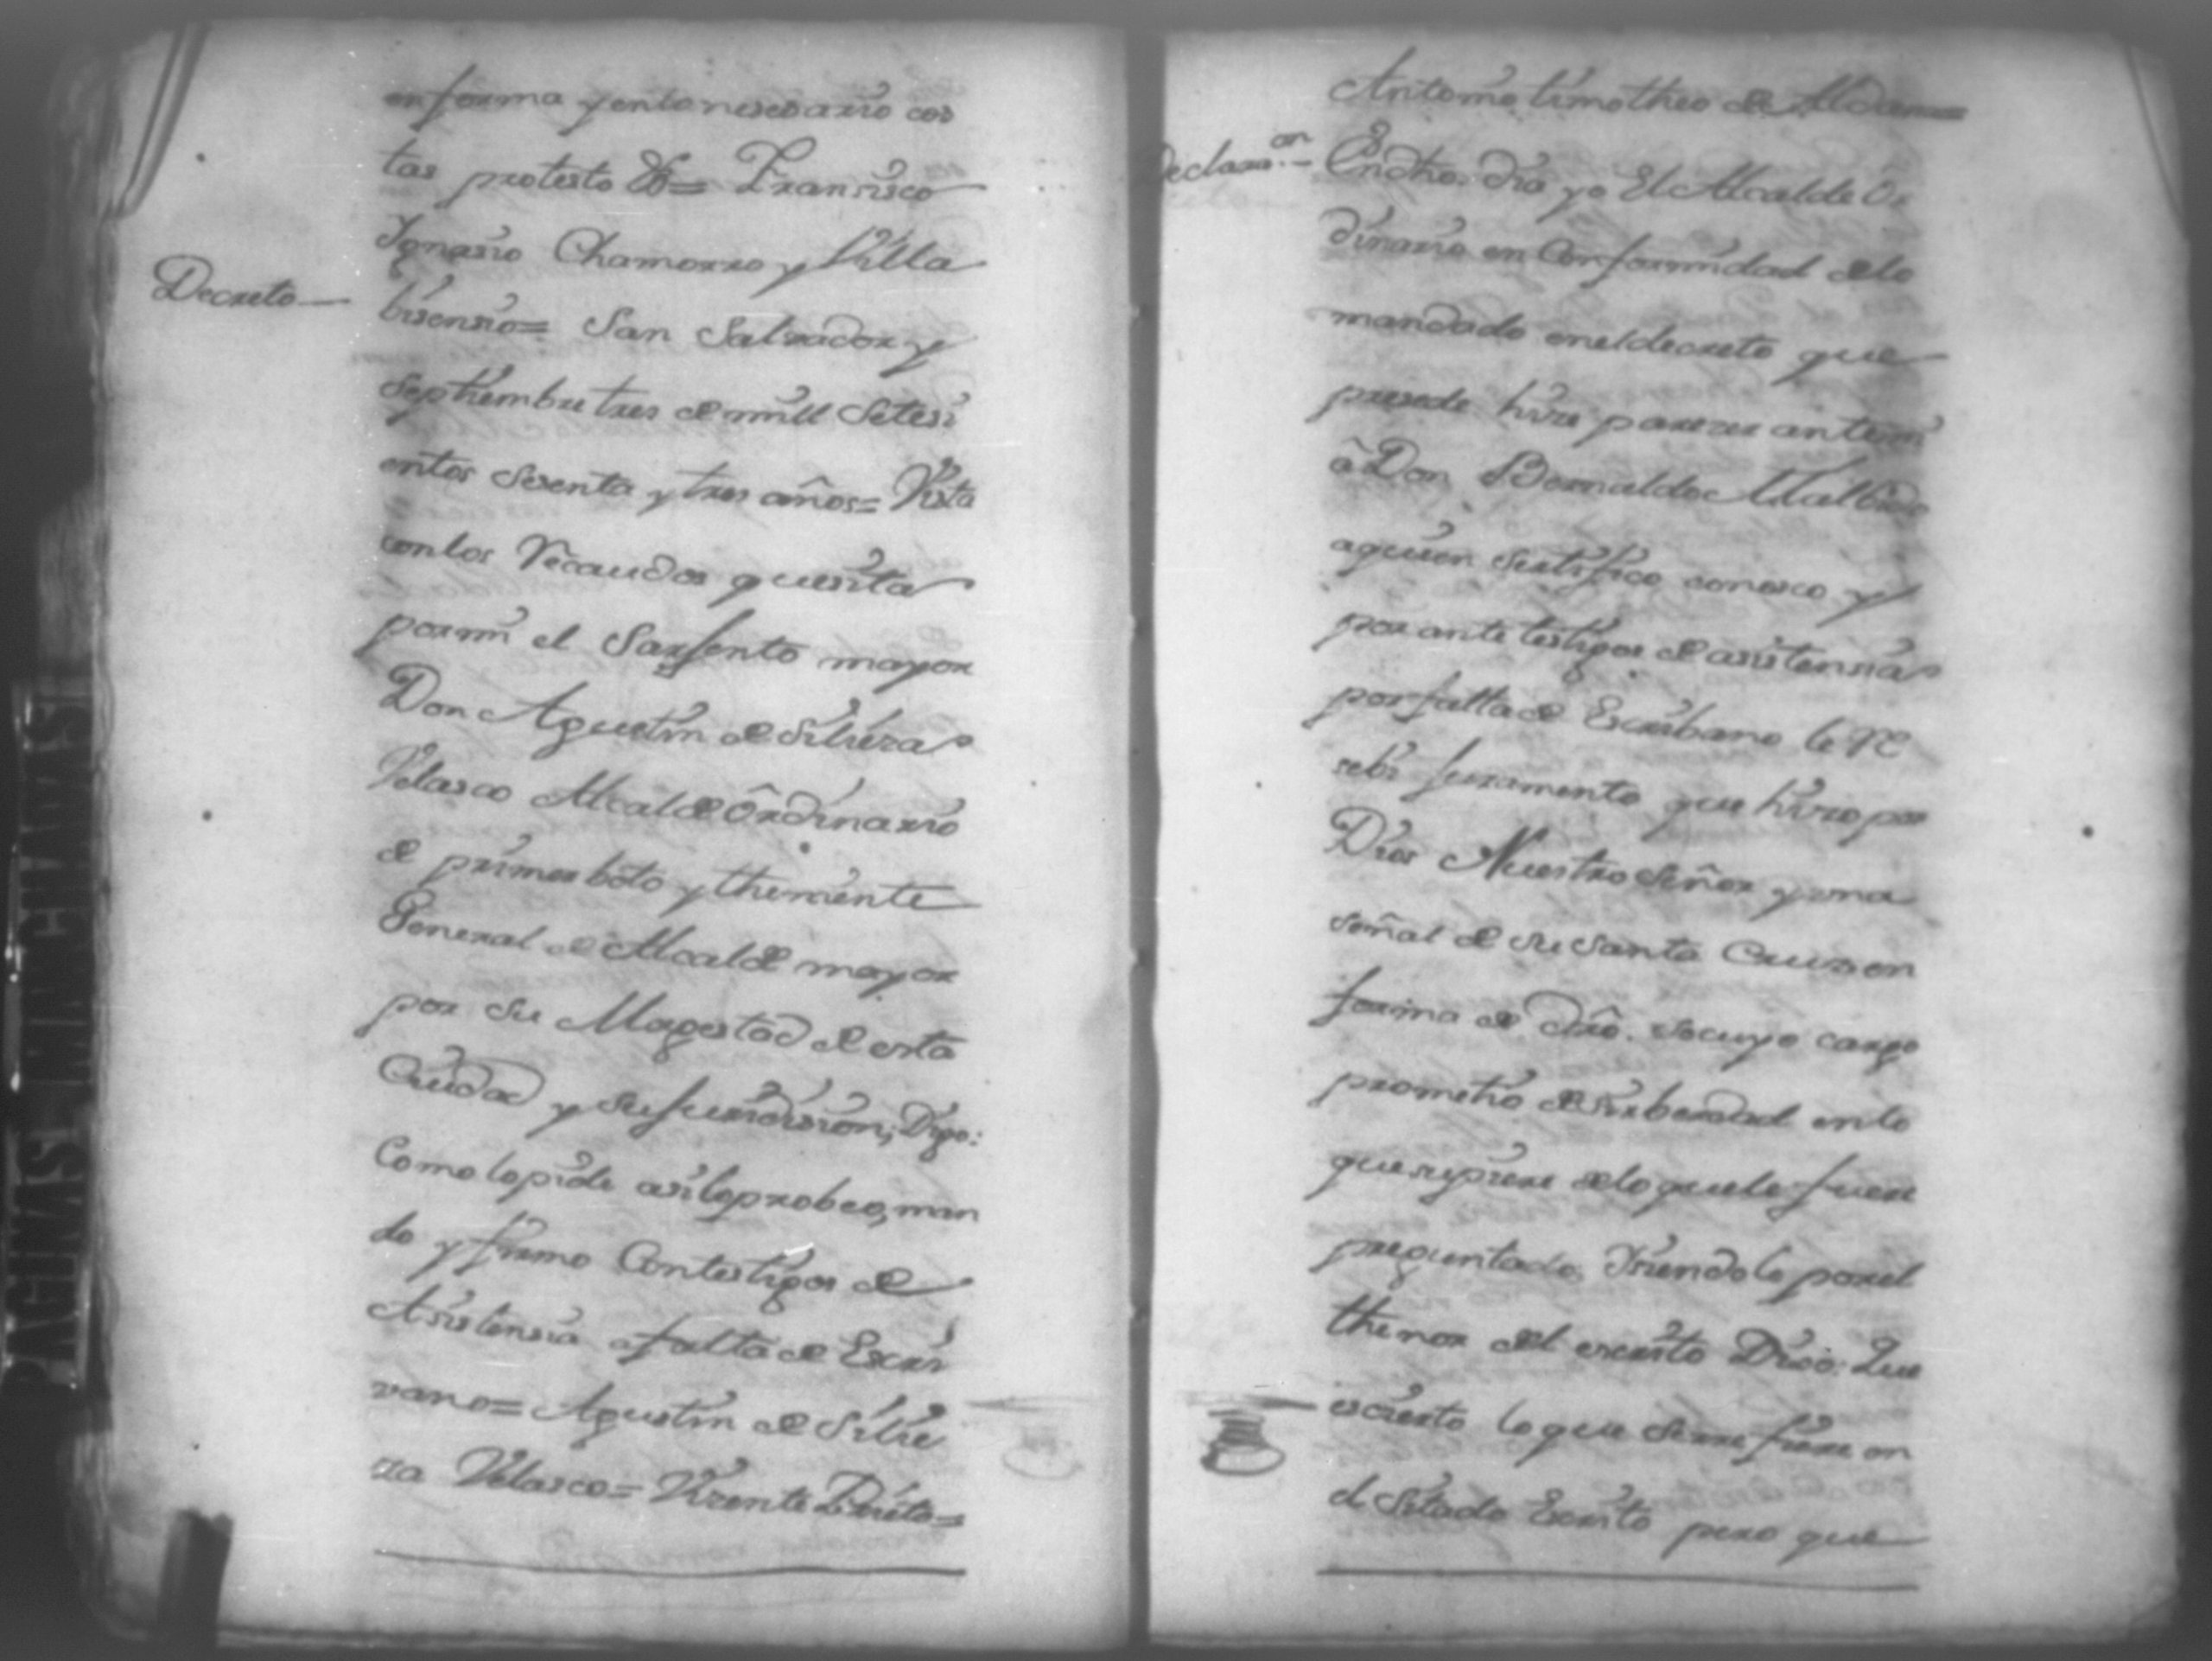 en forma y en lo nesesario cos
tas protesto &a= Fransisco
Ignasio Chamorro y Villa
Decreto—
bisensio= San Salvador y
Septhiembre tres de mill Setesi
entos Sesenta y tres años= Vista
con los Recaudos que sita
por mi el Sarjento mayor
Don Agustin de Silieza
Velasco Alcalde Ôrdinario
de primer boto y theniente
General de Alcalde mayor
por Su Magestad de esta
Ciudad y su jurisdision; Digo:
Como lo pide asi lo probeo, man
do y firmo Con testigos de
Asistensia a falta de Escri
vano= Agustin de Silie
za Velasco= Visente Brito=
Antonio timotheo de Aldana=
Declaraon.—
En dho. dia yo El Alcalde Or
dinario en Conformidad de lo
mandado en el decreto que
presede hize pareser ante mi
â Don Bernaldo
a quien Sertifico conosco y
por ante testigos de asistensia
por falta de Escribano le Re
sebi juramento que hizo por
Dios Nuestro Señor y una
señal de su Santa Cruz en
forma de dro. so cuyo cargo
prometio desir berdad en lo
que supiere de lo que le fuere
preguntado, Siendolo por el
thenor del escrito Dixo: Que
es cierto lo que Se refiere en
el Sitado Escrito pero que